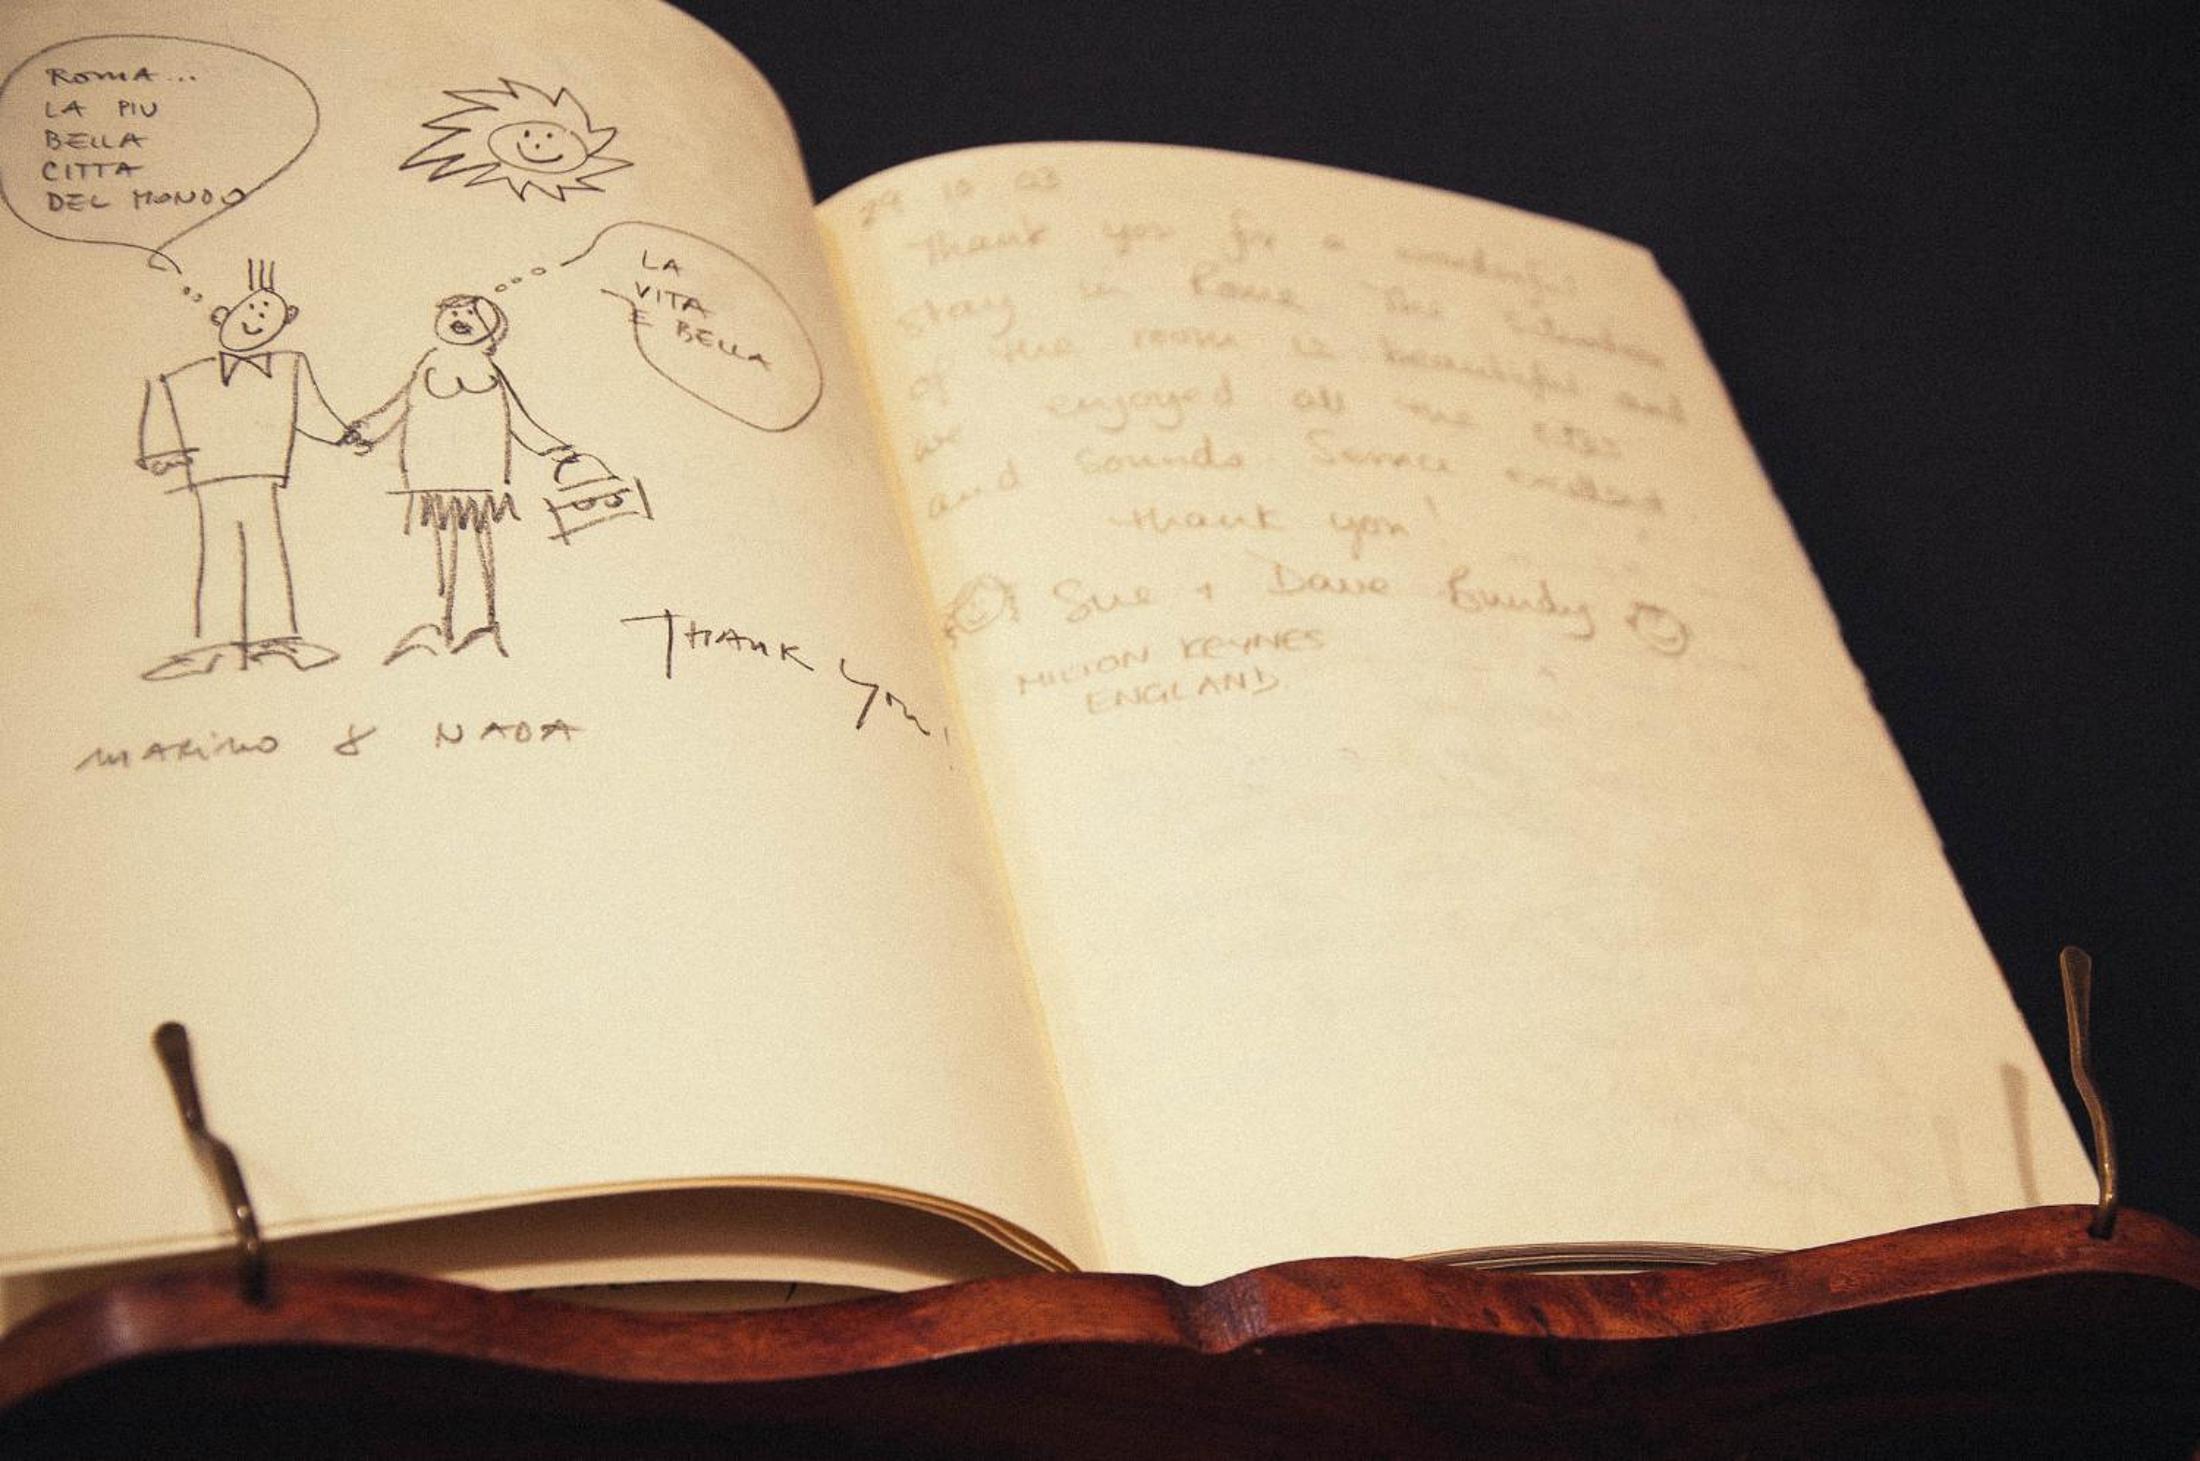 ROMA...
LA PIU
BELLA
CITTA
DEL MONDO
LA
VITA
E BELLA
THANK YOU!
MARINO & NADA
29 10 03
Thank you for a wonderful
stay in Rome The situation
of the room is beautiful and
we enjoyed all the sites
and sounds Service excellent
thank you!
Sue + Dave Bundy
MILTON KEYNES
ENGLAND